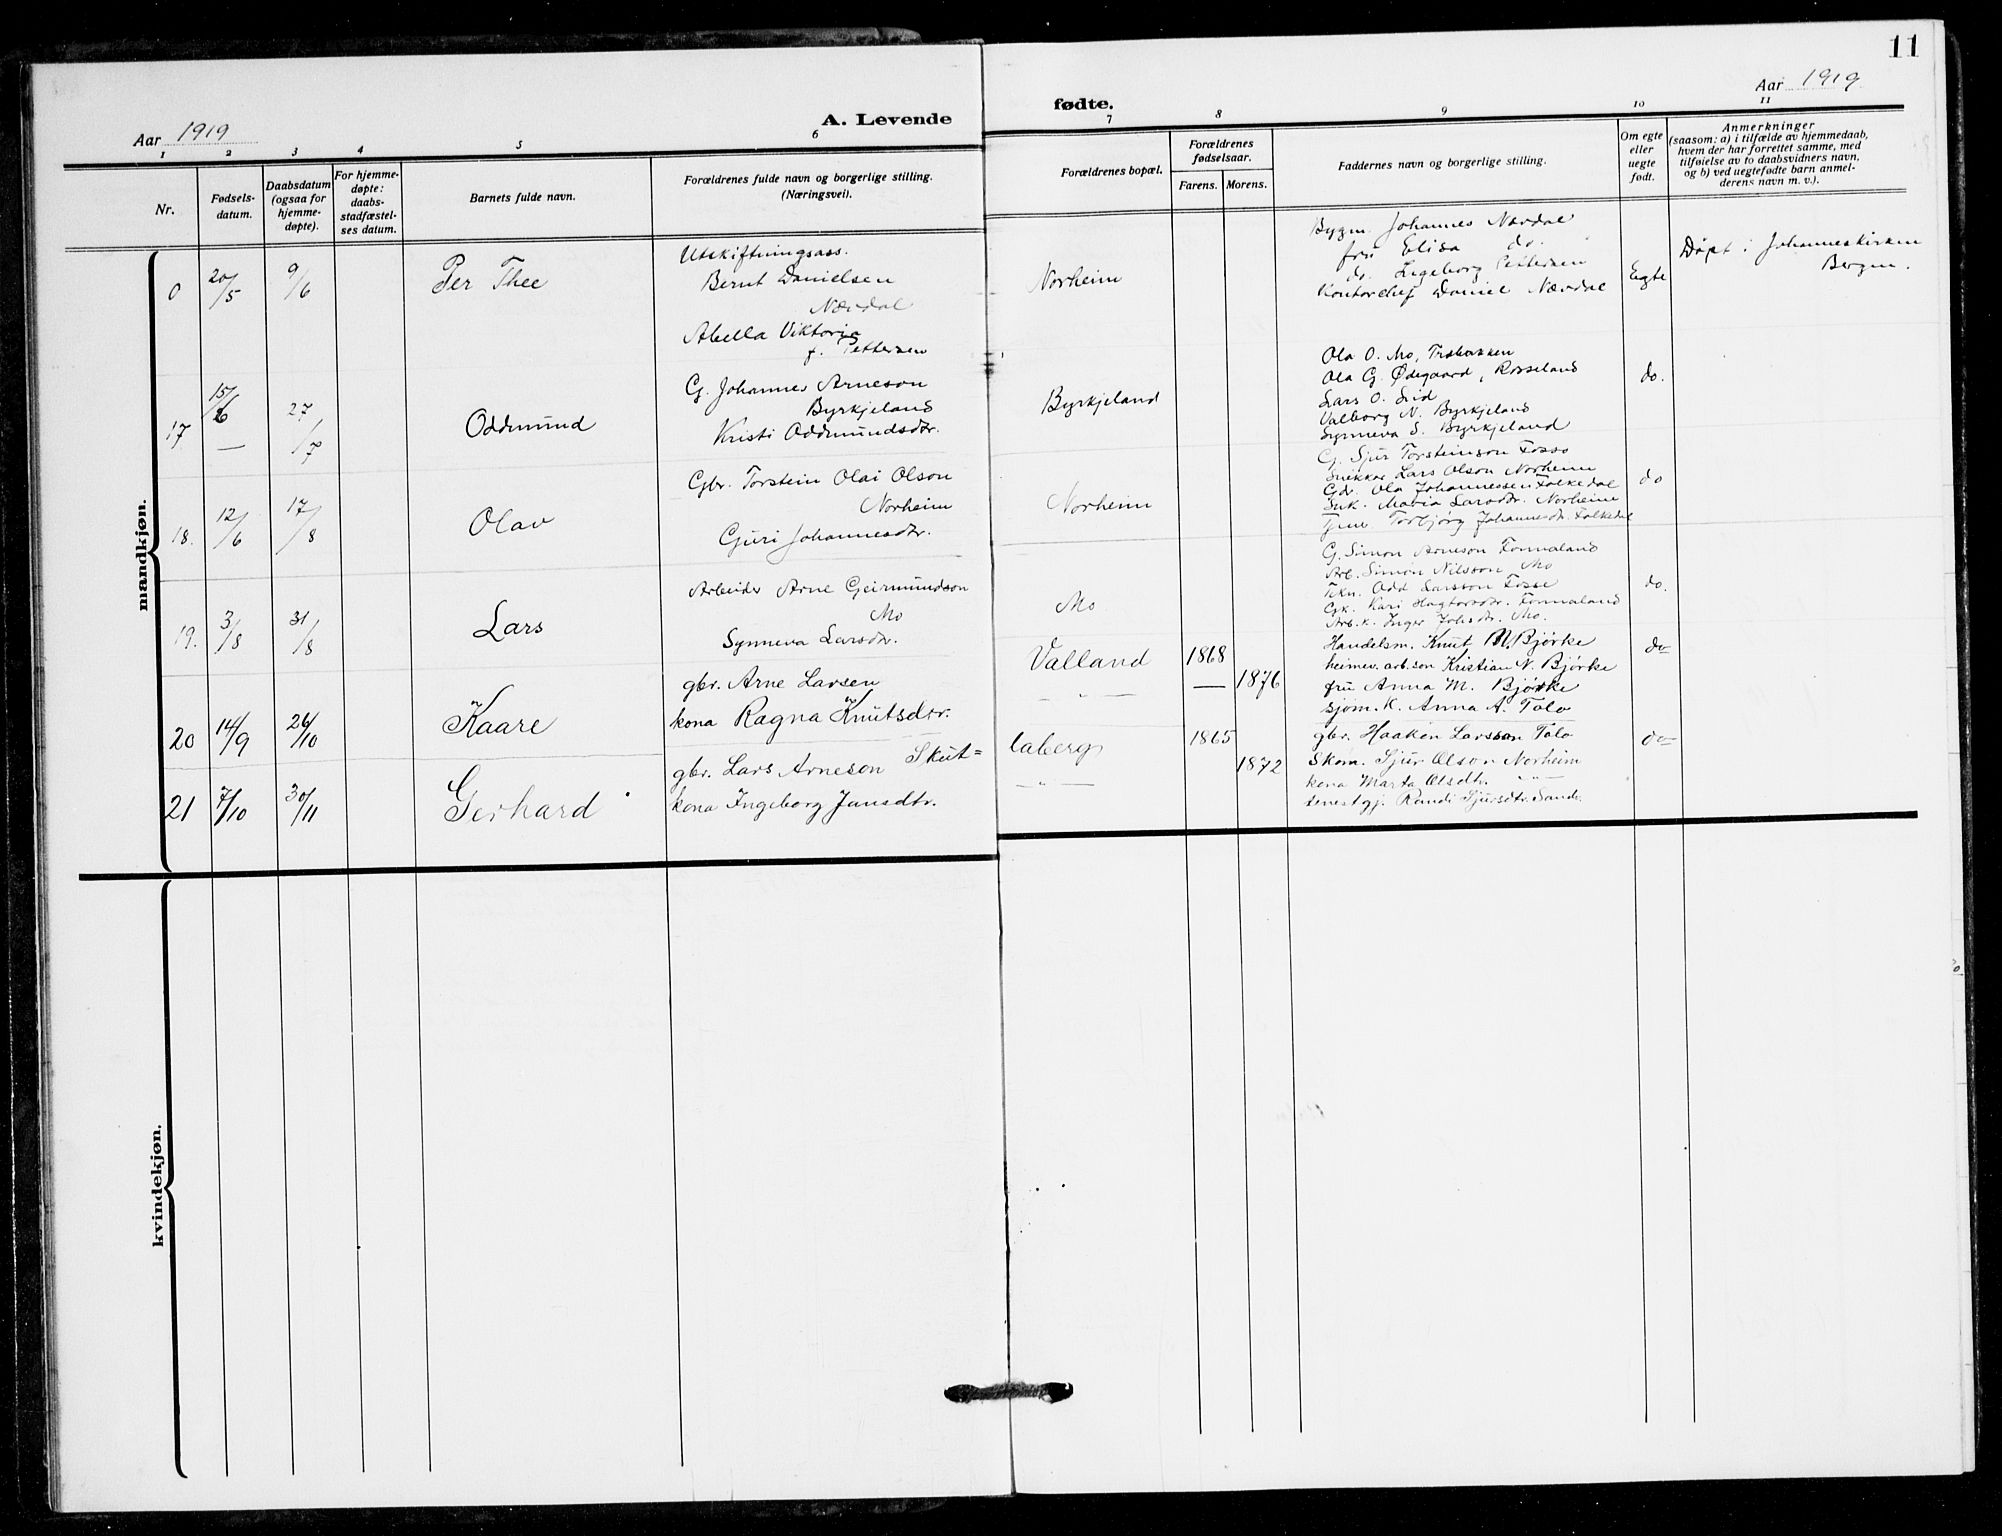 11
Aar 1919
A. Levende
fødte.
Aar 1919
1 2 3 4 5 6 7 8 9 10 11
Nr.
Fødsels-
datum.
Daabsdatum
(ogsaa for
hjemme-
døpte).
For hjemme-
døpte:
daabs-
stadfæstel-
ses datum.
Barnets fulde navn.
Forældrenes fulde navn og borgerlige stilling.
(Næringsvei).
Forældrenes bopæl.
Forældrenes
fødselsaar.
Farens. Morens.
Faddernes navn og borgerlige stilling.
Om egte
eller
uegte
født.
Anmerkninger
(saasom: a) i tilfælde av hjemmedaab,
hvem der har forrettet samme, med
tilføielse av to daabsvidners navn,
og b) ved uegtefødte barn anmel-
derens navn m. v.).
mandkjøn.
0 20/5 9/6 Per Thee
Utskiftningsass.
Bernt Danielsen
Nærdal
Abella Viktoria
f. Pettersen
Norheim
Bygm. Johannes Nærdal
fru Elisa do.
do. Ingeborg Pettersen
Kontorchef Daniel Nærdal
Egte
Døpt i Johanneskirken
Bergen.
17 15/6 27/7 Oddmund
G. Johannes Arneson
Byrkjeland
Kristi Oddmundsdtr.
Byrkjeland
Ola O. Mo,
Ola G. Ødegaard, Rosseland
Lars O. Lid
Valborg N. Byrkjeland
Synneva S. Byrkjeland
do.
18. 12/6 17/8 Olav
Gbr. Torstein Olai Olson
Norheim
Guri Johannesdtr.
Norheim
G. Sjur Torsteinson Fosse
Snikkar Lars Olson Norheim
Gdr. Ola Johannessen Folkedal
Snk. Maria Larsdtr. Norheim
Torbjørg Johannesdtr. Folkedal
do
19. 3/8 31/8 Lars
Arbeider Arne Geirmundson
Mo
Synneva Larsdtr.
Mo
G. Simon Arneson Fonnaland
Arb. Simon Nilsson Mo
Tekn. Odd Larsson Fosse
Gk. Kari Hagtorsdtr. Fonnaland
Arb.k. Inger Johsdtr. Mo.
do.
20 14/9 26/10 Kaare
gbr. Arne Larsen
kona Ragna Knutsdtr.
Valland
— " —
1868
— 1876
Handelsm. Knut N. Bjørke
heimev. arb. son Kristian N. Bjørke
fru Anna M. Bjørke
sjøm. k. Anna A. Tolo
do
21 7/10 30/11 Gerhard
gbr. Lars Arneson Skut=
kona Ingeborg Jansdtr.
laberg
— " —
1865
1872
gbr. Haaken Larsson Tolo
Skom. Sjur Olson Norheim
kona Marta Olsdtr. — " —
tenestgj. Randi Sjursdtr. Sande.
do
kvindekjøn.